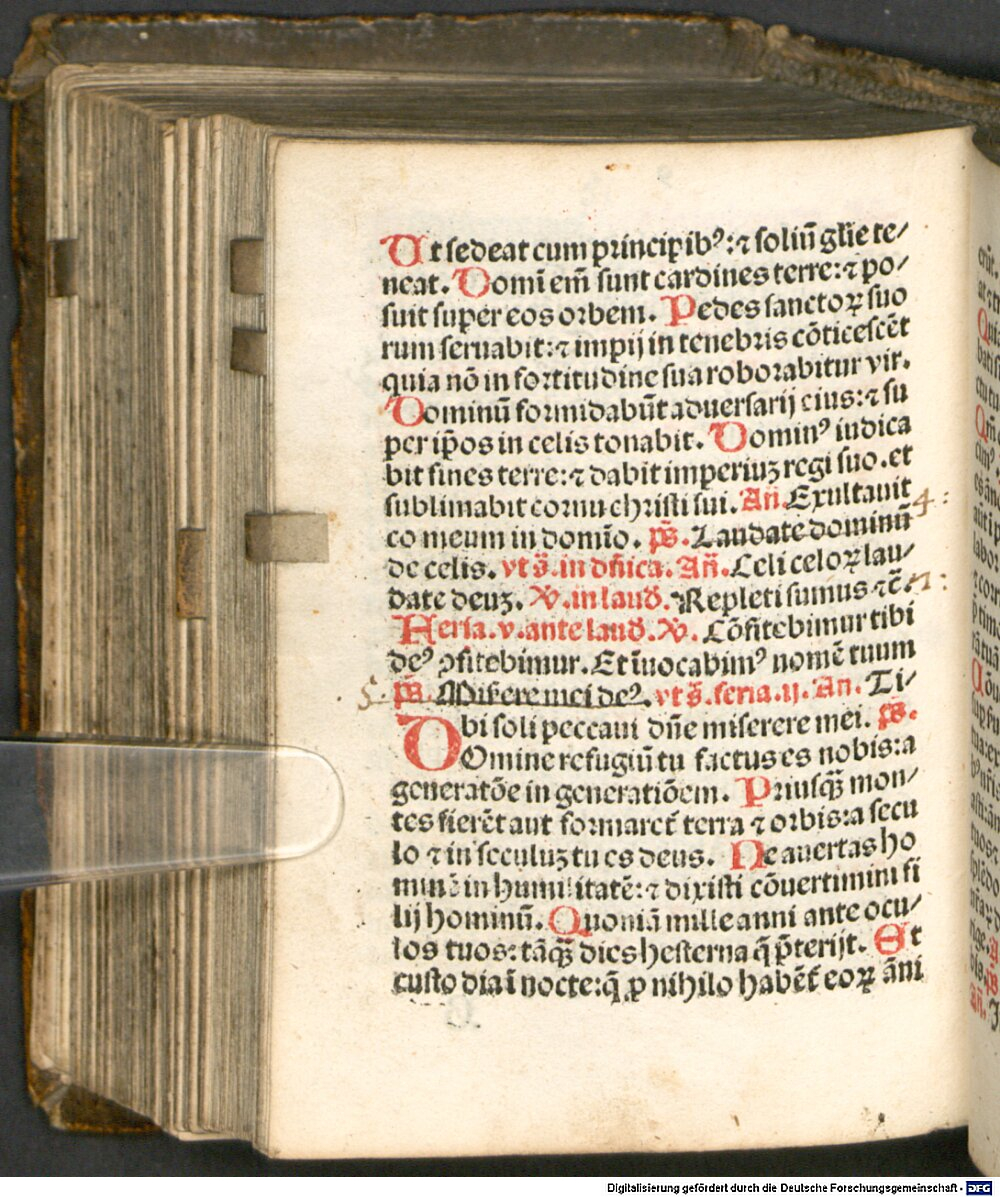 Ut sedeat cum principibꝰ: ⁊ soliū glīe te⸗
neat. Domī em̄ sunt cardines terre: ⁊ po⸗
suit super eos orbem. Pedes sanctoꝝ suo
rum seruabit: ⁊ impij in tenebris cōticescēt
quia nō in fortitudine sua roborabitur vir.
Dominū formidabūt aduersarij eius: ⁊ su
per ip̄os in celis tonabit. Dominꝰ iudica
bit fines terre: ⁊ dabit imperiuꝫ regi suo. et
sublimabit cornu christi sui. Añ. Exultauit
co meum in domīo. p̄s. Laudate dominū 4:
de celis. vt s̄. in dñica. Añ. Celi celoꝝ lau⸗
date deuꝫ. ꝟ. in laud̄. Repleti sumus ⁊c̄. n:
Feria. v. ante laud̄. ꝟ. Cōfitebimur tibi
deꝰ ꝯfitebimur. Et īuocabimꝰ nomē tuum
5. p̄s. Misere mei deꝰ. vt s̄. feria. ij. An. Ti⸗
bi soli peccaui dn̄e miserere mei. p̄s.
DOmine refugiū tu factus es nobis: a
generatōe in generatiōem. Priusqꝫ mon⸗
tes fierēt aut formaret᷑ terra ⁊ orbis: a secu
lo ⁊ in seculuꝫ tu es deus. Ne auertas ho
minē in humilitatē: ⁊ dixisti cōuertimini fi
lij hominū. Quoniā mille anni ante ocu⸗
los tuos: tāqꝫ dies hesterna q̄ p̄terijt. Et
custo dia ī nocte: q̄ ꝓ nihilo habēt᷑ eoꝝ āni
Digitalisierung gefördert durch die Deutsche Forschungsgemeinschaft - DFG